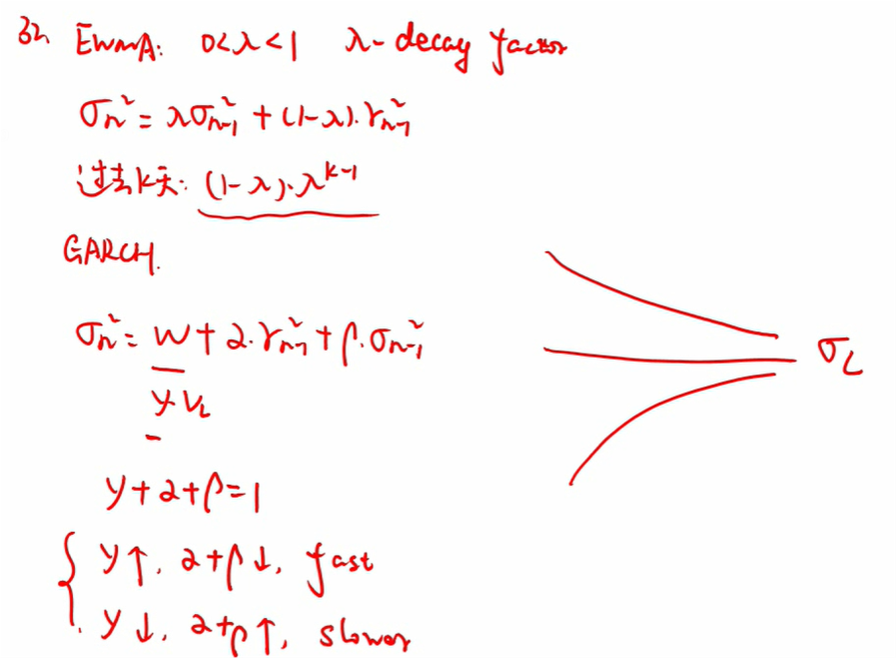 32. EWMA: 0<λ<1 λ- decay factor
σn² = λσn-1² + (1-λ)·rn-1²
过去k天: (1-λ)·λ^k-1
GARCH.
σn² = w + α·rn-1² + β·σn-1²
γ·VL
σL
γ+α+β=1
γ↑, α+β↓, fast
γ↓, α+β↑, slower